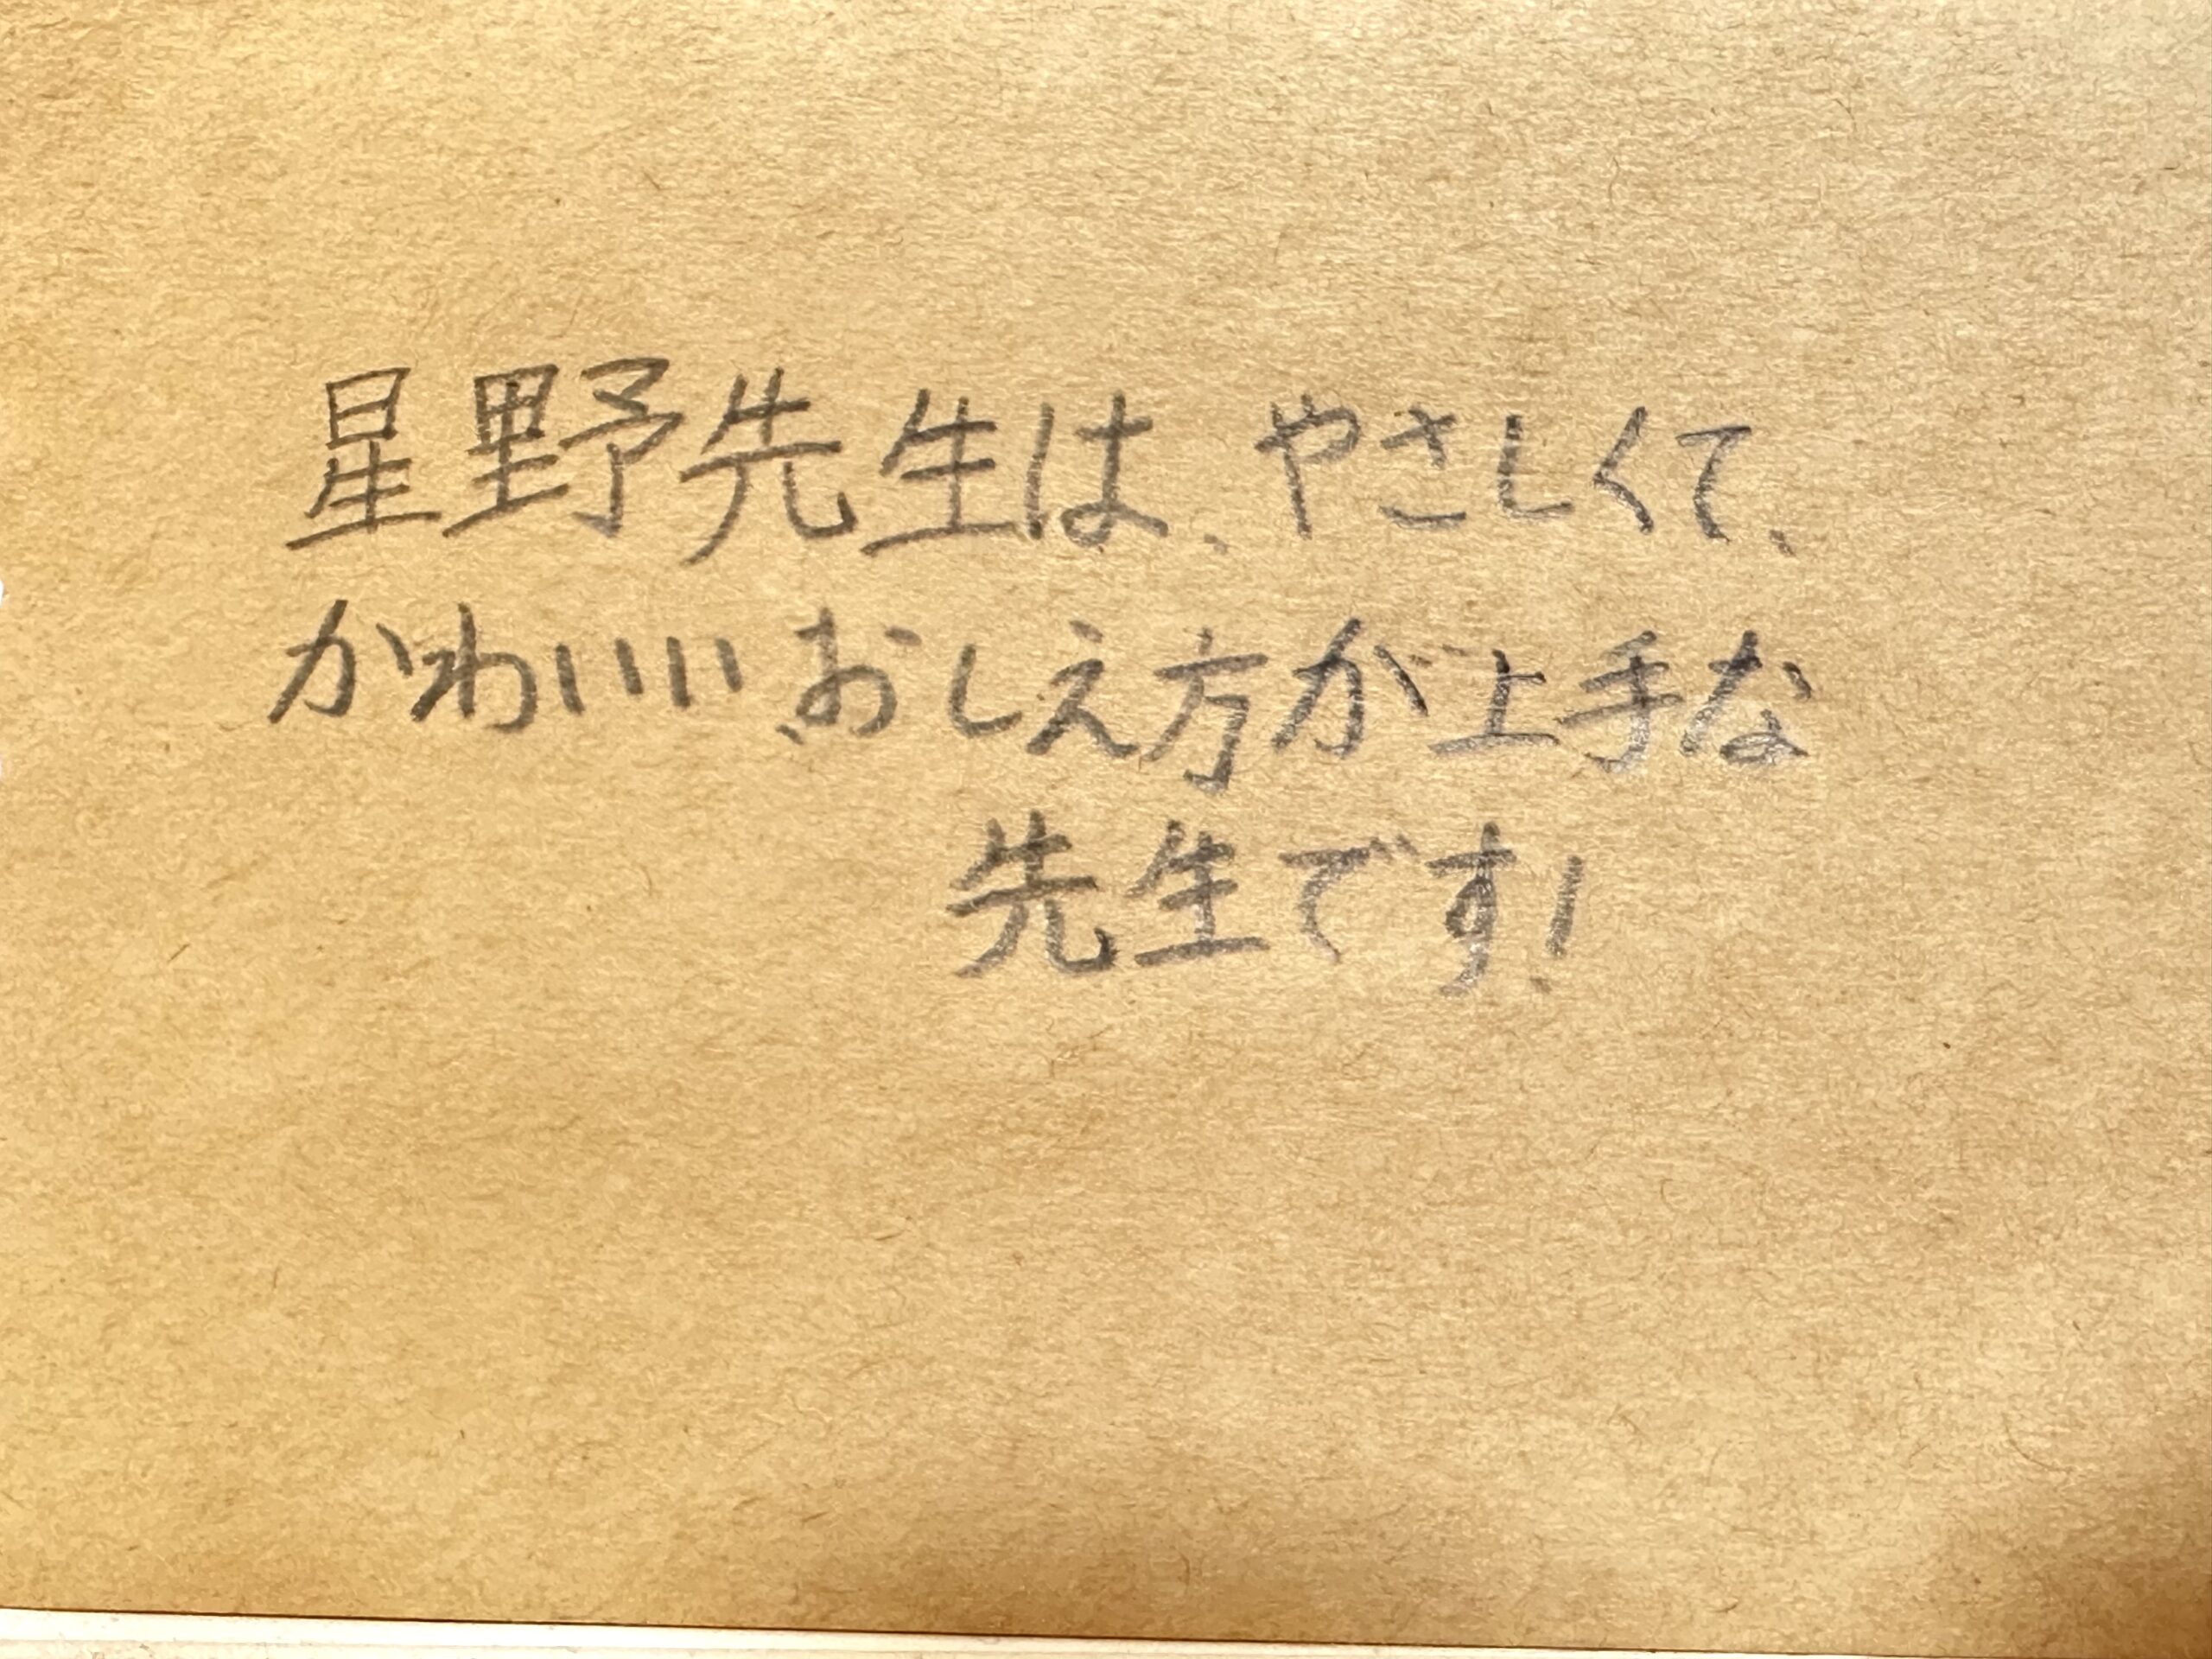 星野先生は、やさしくて、
かわいい、おしえ方が上手な
先生です!